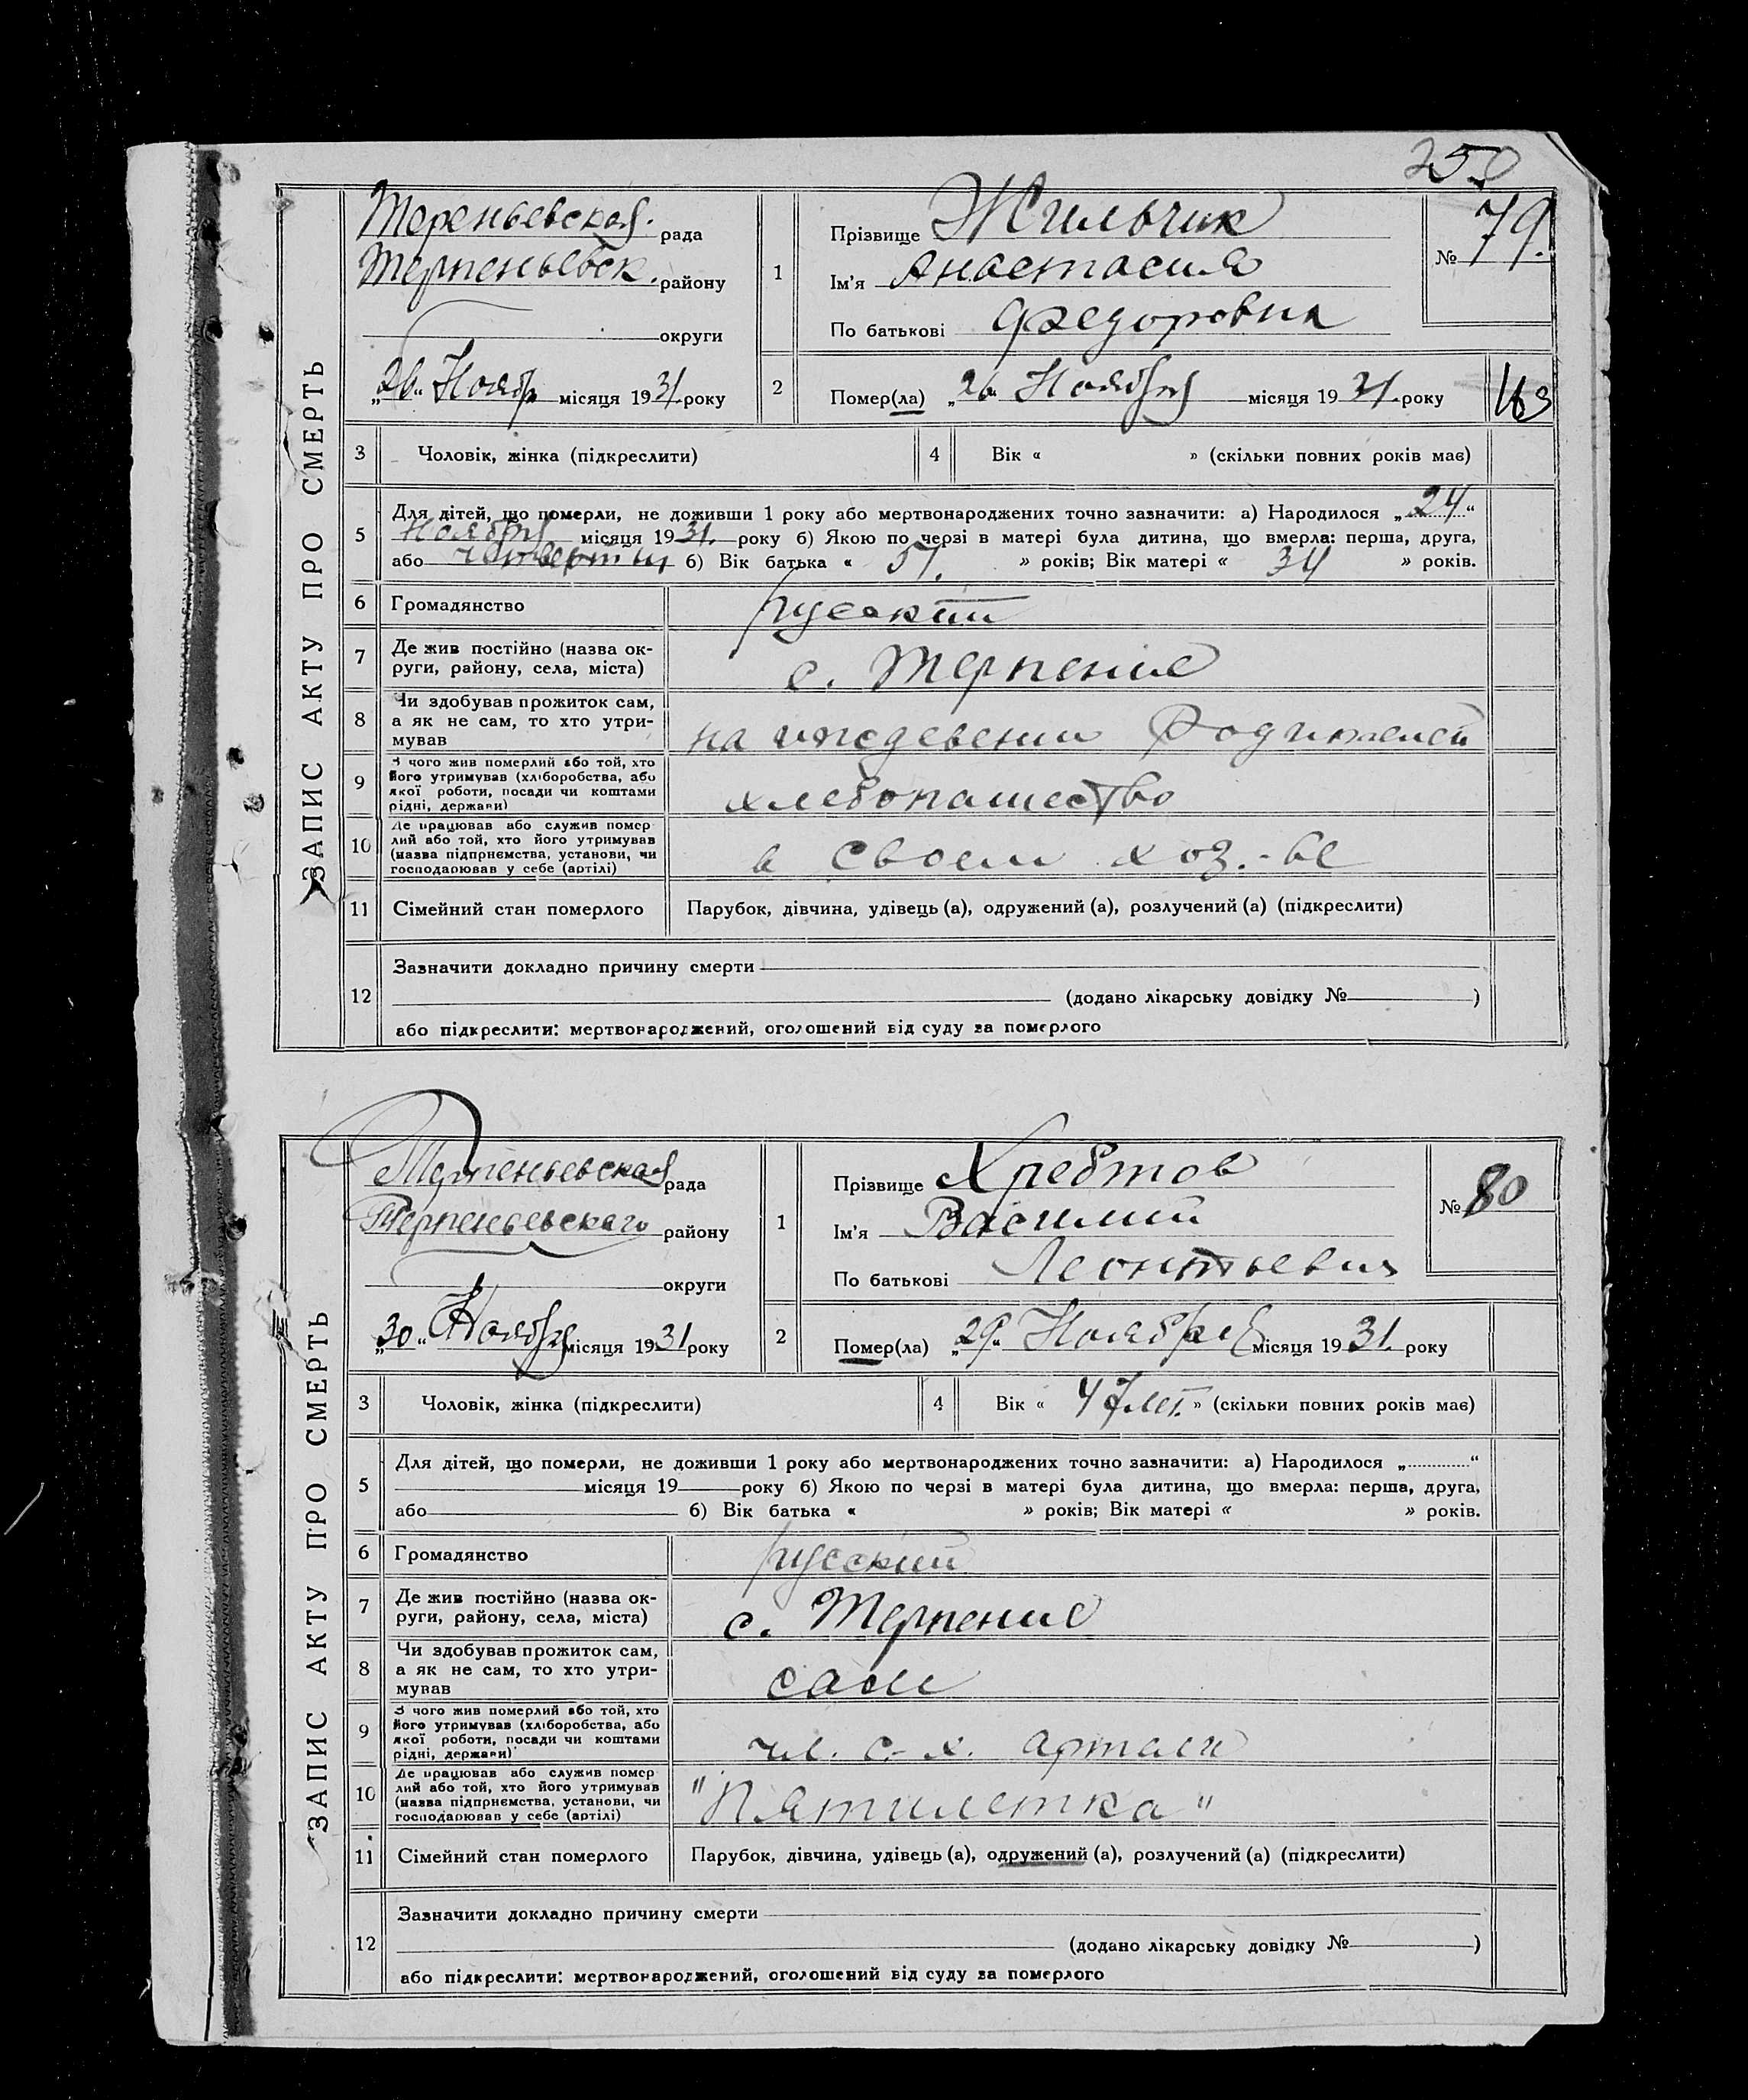 250
ЗАПИС АКТУ ПРО СМЕРТЬ
Тереньевская рада
Терпеньевск. району
округи
„26“ Ноябр місяця 1931. року
1
Прізвище Жильчик
Ім'я Анастасия
По батькові Федоровна
№ 79.
2
Помер(ла) „26“ Ноября місяця 1931. року
163
3 Чоловік, жінка (підкреслити)
4 Вік « » (скільки повних років має)
5
Для дітей, що померли, не доживши 1 року або мертвонароджених точно зазначити: а) Народилося „24“
Ноября місяця 1931. року б) Якою по черзі в матері була дитина, що вмерла: перша, друга,
або четвертый б) Вік батька « 51. » років; Вік матері « 34 » років.
6 Громадянство русский
7 Де жив постійно (назва ок-
руги, району, села, міста)
с. Терпение
8 Чи здобував прожиток сам,
а як не сам, то хто утри-
мував
на иждевении Родителей
9 З чого жив померлий або той, хто
його утримував (хліборобства, або
якої роботи, посади чи коштами
рідні, держави)
хлебопашество
10 Де працював або служив помер-
лий або той, хто його утримував
(назва підприємства, установи, чи
господарював у себе (артілі)
в своем хоз.-ве
11 Сімейний стан померлого Парубок, дівчина, удівець (а), одружений (а), розлучений (а) (підкреслити)
12
Зазначити докладно причину смерти
(додано лікарську довідку № )
або підкреслити: мертвонароджений, оголошений від суду за померлого
ЗАПИС АКТУ ПРО СМЕРТЬ
Терпеньевская рада
Терпеньевскаго району
округи
„30“ Ноября місяця 1931 року
1
Прізвище Хребтов
Ім'я Василий
По батькові Леонтьевич
№ 80
2
Помер(ла) „29“ Ноября місяця 1931. року
3 Чоловік, жінка (підкреслити)
4 Вік « 47 лет. » (скільки повних років має)
5
Для дітей, що померли, не доживши 1 року або мертвонароджених точно зазначити: а) Народилося „ “
місяця 19 року б) Якою по черзі в матері була дитина, що вмерла: перша, друга,
або б) Вік батька « » років; Вік матері « » років.
6 Громадянство русский
7 Де жив постійно (назва ок-
руги, району, села, міста)
с. Терпение
8 Чи здобував прожиток сам,
а як не сам, то хто утри-
мував
сам
9 З чого жив померлий або той, хто
його утримував (хліборобства, або
якої роботи, посади чи коштами
рідні, держави)
чл. с-х. артели
10 Де працював або служив помер-
лий або той, хто його утримував
(назва підприємства, установи, чи
господарював у себе (артілі)
"Пятилетка"
11 Сімейний стан померлого Парубок, дівчина, удівець (а), одружений (а), розлучений (а) (підкреслити)
12
Зазначити докладно причину смерти
(додано лікарську довідку № )
або підкреслити: мертвонароджений, оголошений від суду за померлого